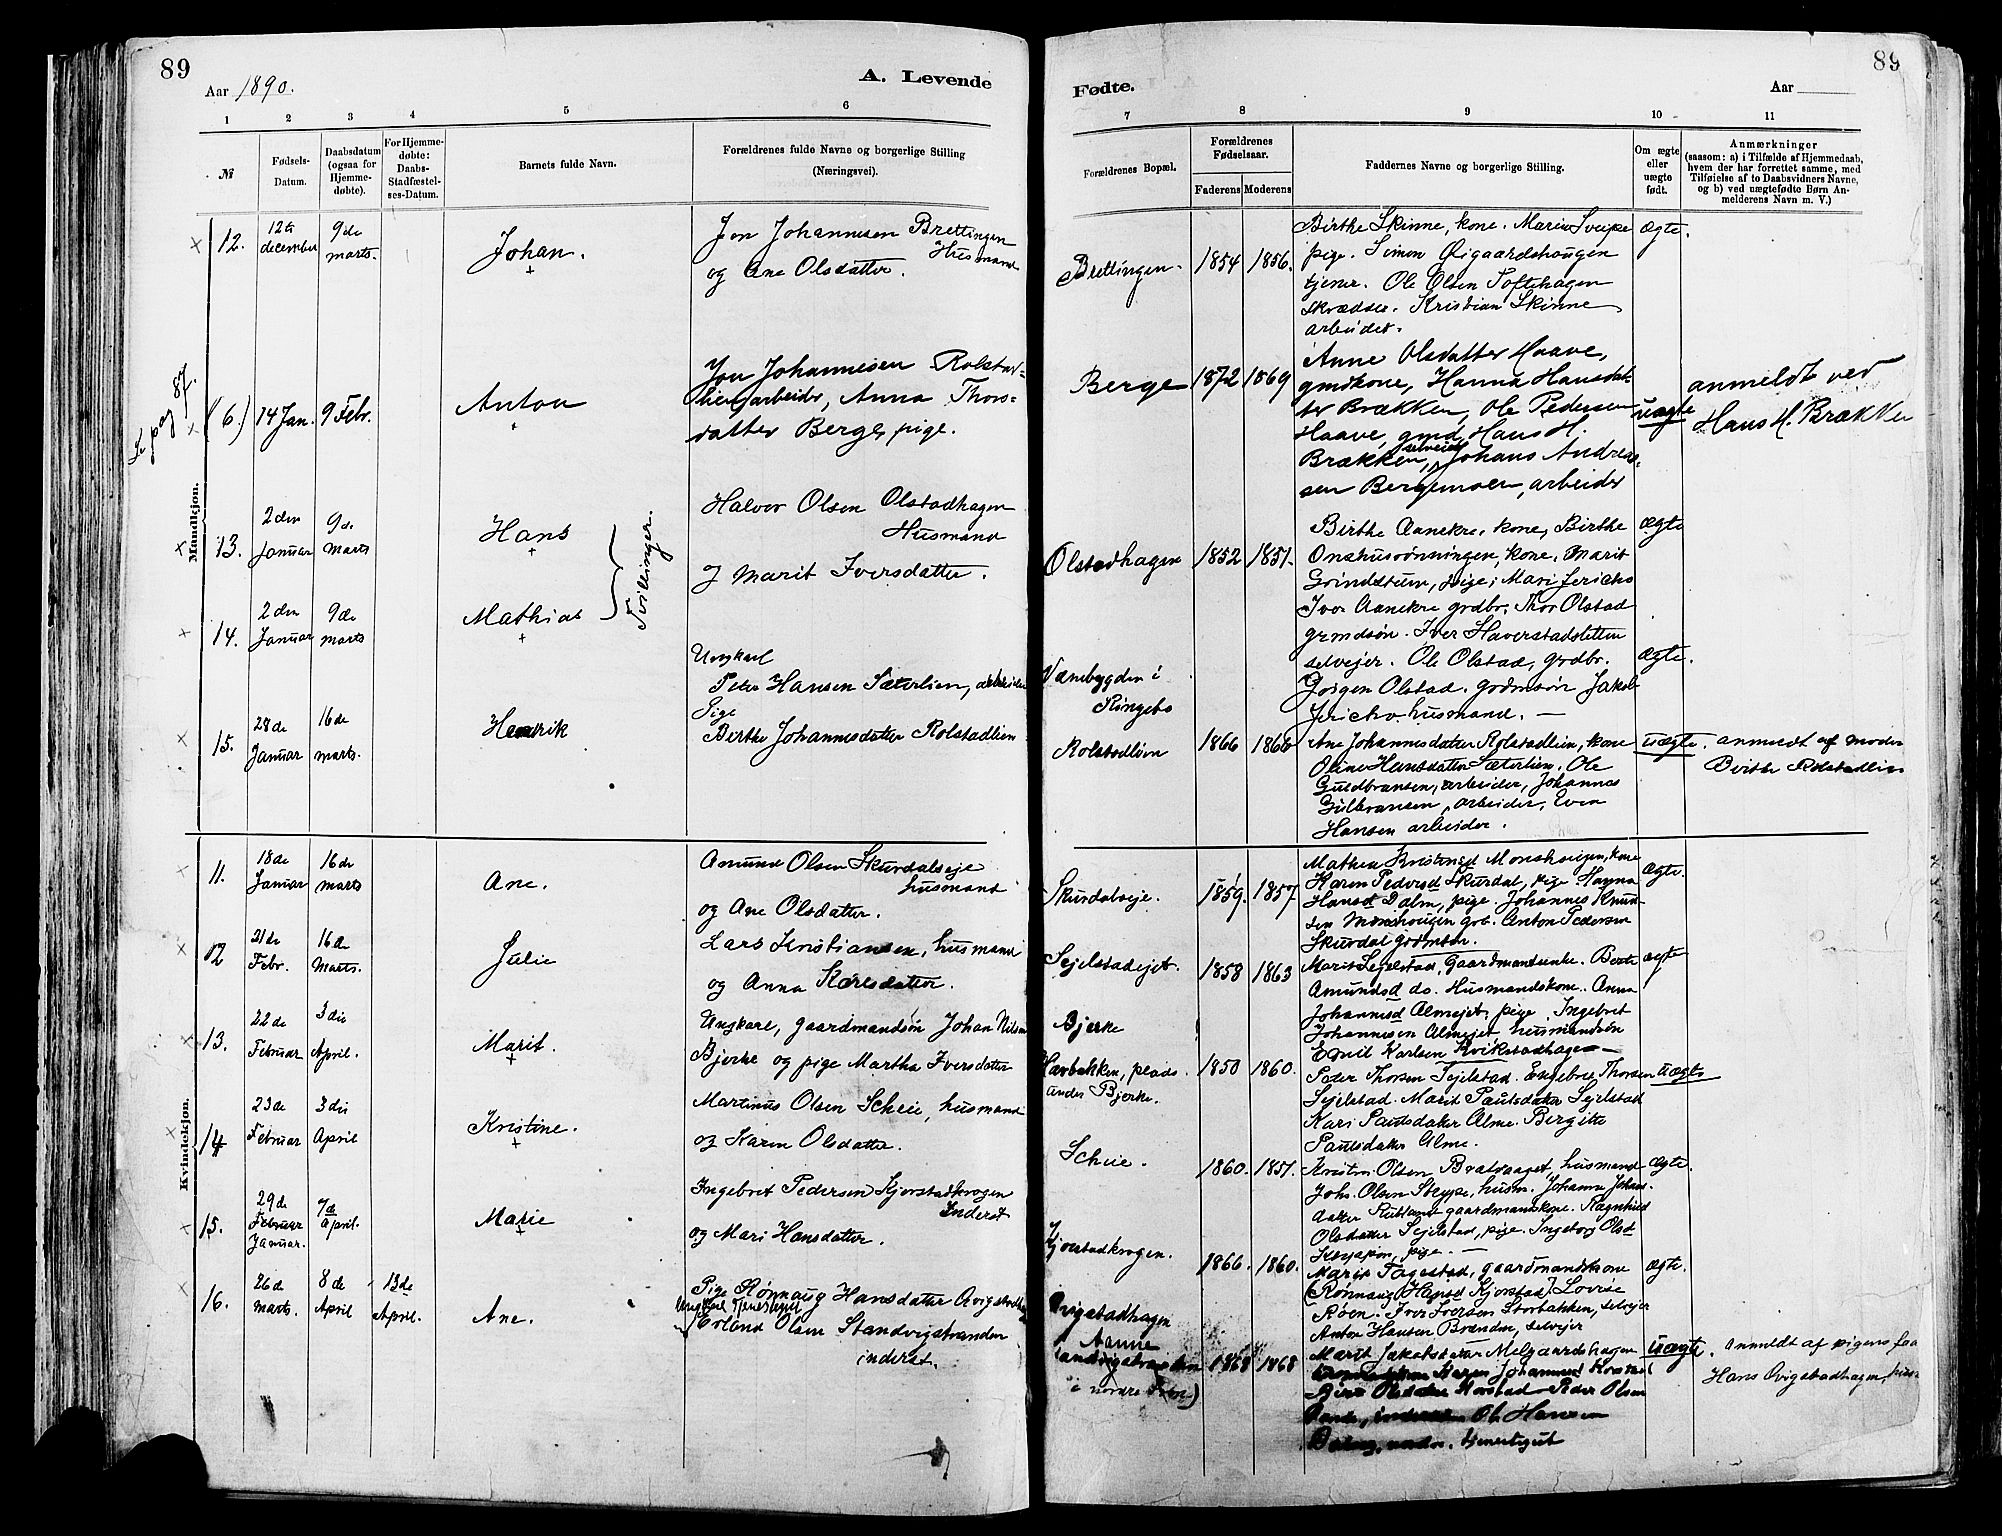 89
Aar 1890.
A. Levende
1 2 3 4 5 6
№
Fødsels-
Datum.
Daabsdatum
(ogsaa for
Hjemme-
døbte).
For Hjemme-
døbte:
Daabs-
Stadfæstel-
ses-Datum.
Barnets fulde Navn.
Forældrenes fulde Navne og borgerlige Stilling
(Næringsvei).
Mandkjøn.
12. 12te december 9de marts. Johan.
Jon Johannesen Brettingen
Husmand
og Ane Olsdatter.
pag 87.
(6.) 14 Jan. 9 Febr. Anton
Jon Johannesen Rolstad-
arbeider, Anna Thors-
datter Berge, pige.
13. 2den Januar 9de marts Hans
14. 2den Januar 9de marts Mathias
Tvillinger.
Halvor Olsen Olstadhagen
Husmand
Marit Iversdatter.
15. 28de Januar 16de marts. Hendrik
Ungkarl
Peter Hansen Sæterlien, arbeider
Pige
Berthe Johannesdatter Rolstadlien
Kvindekjøn.
11. 18de Januar 16de marts Ane.
Amund Olsen Skurdalseje
husmand
og Ane Olsdatter.
12 21de Febr. 16de Marts. Julie
Lars Kristiansen, husmand
og Anna Karlsdatter.
13. 22de Februar 3die April. Marit.
Ungkarl, gaardmandsøn Johan Nilsen
Bjerke og pige Martha Iversdatter
14 23de Februar 3die April Kristine.
Martinus Olsen Scheie, husmand
og Karen Olsdatter.
15. 29de Februar Januar. 7de April. Marie
Ingebret Pedersen Kjorstadkrogen
Inderst
og Mari Hansdatter.
16. 26de marts. 8de April 13de April. Ane.
Pige Rønnaug Hansdatter
Ungkarl Tjenestegut
Erland Olsen Standvigstranden
inderst.
89
Fødte.
Aar
7 8 9 10 11
Forældrenes Bopæl.
Forældrenes
Fødselsaar.
Faderens Moderens
Faddernes Navne og borgerlige Stilling.
Om ægte
eller
uægte
født.
Anmærkninger
(saasom: a) i Tilfælde af Hjemmedaab,
hvem der har forrettet samme, med
Tilføielse af to Daabsvidners Navne,
og b) ved uægtefødte Børn An-
melderens Navn m. V.)
Brettingen. 1854 1856.
Birthe Skinne, kone. Marie Sveipe ægte.
pige. Simen Øigaardshougen
tjener. Ole Olsen Toftehagen
skrædder. Kristian Skinne
arbeider.
Berge 1872 1869
Anne Olsdatter Haave,
gmdkone, Hanna Hansdat-
ter Brækken, Ole Pedersen
Haave, gmd, Hans H.
Brækken, selveier, Johans Andrea-
sen Bergemoen, arbeider
uægte
anmeldt ved
Hans H. Brækken
Olstadhagen 1852 1851.
Birthe Aanekre, kone, Birthe ægte
Onshusrønningen, kone, Marit
Grindstum, pige, Mari Jericho
Iver Aanekre grdbr. Thor Olstad
grmdsøn. Iver Haverstadsletten
selvejer. Ole Olstad, grdbr. ægte.
Jørgen Olstad. grdmsøn Jakob
Jericho husmand.
Vænebygden i
Ringebo
Rolstadlien 1866 1866
Ane Johannesdatter Rolstadlien, kone uægte. anmeldt af moder
Oline Hansdatter Sæterlien. Ole Berthe Rolstadlien
Guldbransen, arbeider, Johannes
Gulbransen, arbeider, Even
Hansen arbeider.
Skurdalseje. 1859. 1857.
Mathea Monshaugen, kone
Karen Pedersd Skurdal, pige. Hanna ægte.
Hansd Dalm, pige. Johannes Knud-
sen Monshougen grb. Anton Pedersen
Skurdal grdmsøn.
Sejelstadejet. 1858 1863
Marit Sejelstad, Gaardmandsenke. Berte ægte
Amundsd do. Husmandskone. Anna
Johannesd Almejet, pige. Ingebrit
Johannesen Almejet husmandsøn
Emil Karlsen Kvikstadhagen
Bjerke
Havbakken, plads
under Bjerke. 1850 1860.
Peder Thorsen Sejelstad. Engebret Thorsen uægte
Sejelstad. Marit Paulsdatter Sejelstad
Kari Paulsdatter Alme. Bergitte
Paulsdatter Alme.
Scheie. 1860. 1857.
Olsen husmand ægte.
Johs. Olsen Strype, husm. Johanne Johans-
datter gaardmandskone. Ragnhild
Olsdatter Sejelstad, pige. Ingeborg Olsd
pige.
Kjorstadkrogen. 1866. 1860.
Marit Fagestad, gaardmandskone ægte.
(Rønnaug Hansd Kjorstad). Lovise
Røen. Iver Iversen Storbakken, selvejer
Anton Hansen Brenden, selvejer
1868 1868
Marit Jakobsdatter Melgaardshagen uægte. Anmeldt af pigens faa
Karen Hans
Peder Olsen
Ole Hansen
tjenestegut